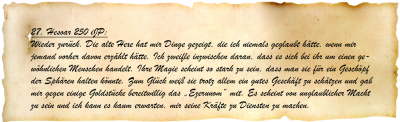 27. Hesvar 250 IP:
Wieder zurück. Die alte Hexe hat mir Dinge gezeigt, die ich niemals geglaubt hätte, wenn mir
jemand vorher davon erzählt hätte. Ich zweifle inzwischen daran, dass es sich bei ihr um einen ge-
wöhnlichen Menschen handelt. Ihre Magie scheint so stark zu sein, dass man sie für ein Geschöpf
der Sphären halten könnte. Zum Glück weiß sie trotz allem ein gutes Geschäft zu schätzen und gab
mir gegen einige Goldstücke bereitwillig das „Ezerunom“ mit. Es scheint von unglaublicher Macht
zu sein und ich kann es kaum erwarten, mir seine Kräfte zu Diensten zu machen.